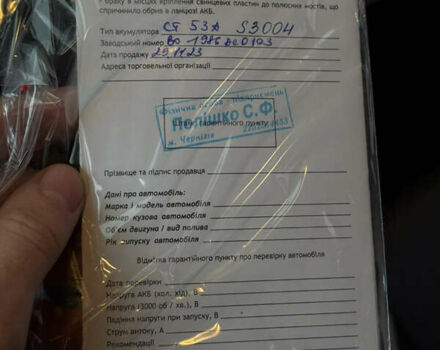 браку в місцях кріплення свинцевих пластин до полюсних мостів, що
спричинило обрив в ланцюзі АКБ.
Тип акумулятора СТ 53А S3004
Заводський номер
Дата продажу 25.11.23
Адреса торговельної організації
Фізична особа підприємець
Полішко С.Ф.
Штамп гарантійного пункту
м. Чернігів
Прізвище та підпис продавця
Дані про автомобіль:
Марка і модель автомобіля
Номер кузова автомобіля
Об'єм двигуна / вид палива
Рік випуску автомобіля
Відмітка гарантійного пункту про перевірку автомобіля
Дата перевірки
Напруга АКБ (хол. хід), В
Напруга (3000 об / хв.), В
Падіння напруги при запуску, В
Струм витоку, А
Рекомендації